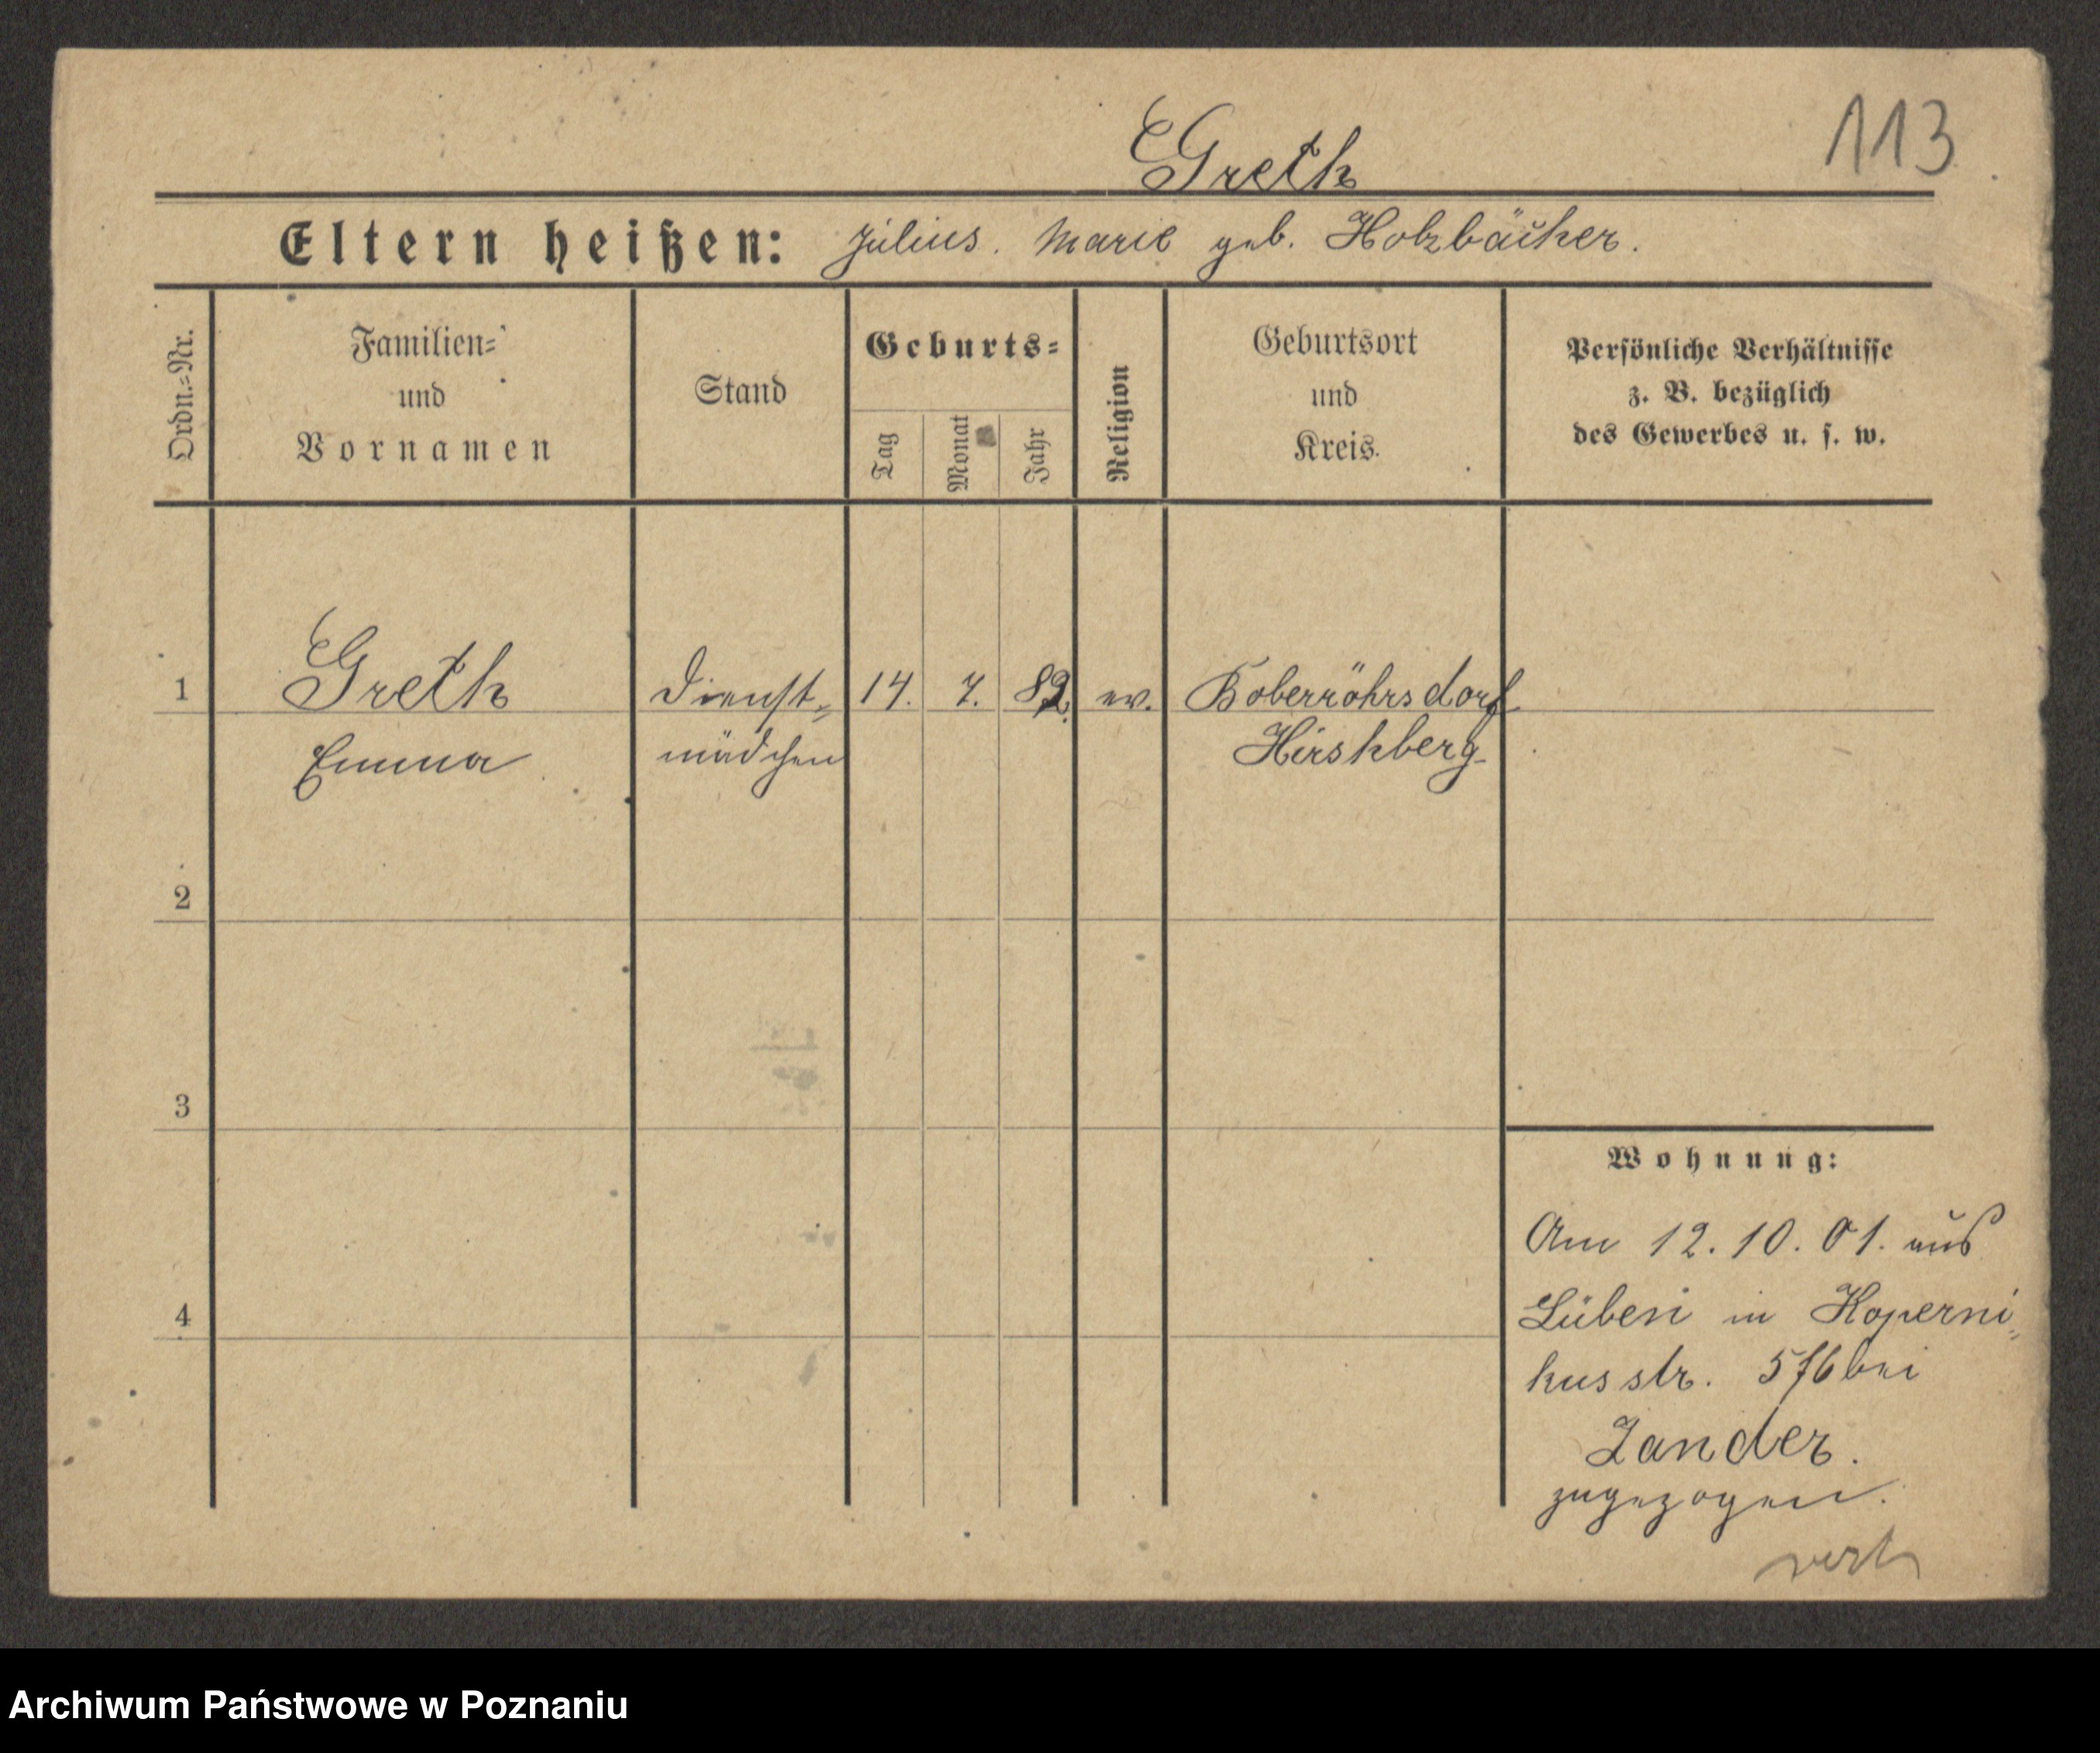 113
Greth
Eltern heißen: Julius. Marie geb. Holzbächer.
Ordn.=Nr.
Familien=
und
Vornamen
Stand
Geburts=
Tag
Monat
Jahr
Religion
Geburtsort
und
Kreis.
Persönliche Verhältnisse
z. B. bezüglich
des Gewerbes u. s. w.
1 Greth Dienst= 14. 7. 82. ev. Boberröhrsdorf
Emma mädchen Hirshberg
2
3
4
Wohnung:
Am 12.10.01. aus
Lüben in Koperni=
kusstr. 5/6 bei
Zander.
zugezogen.
Archiwum Państwowe w Poznaniu